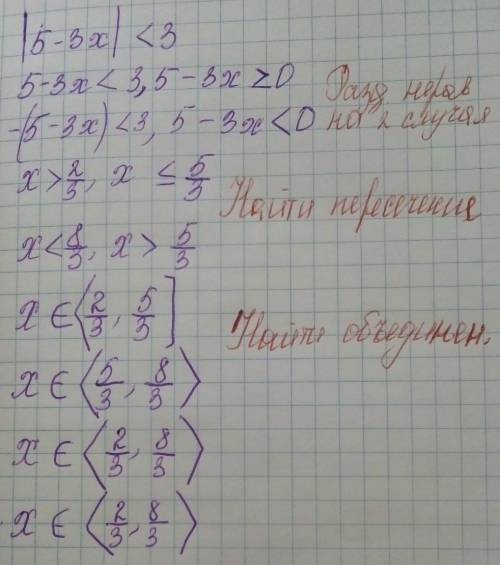 |5-3x| < 3
5-3x < 3, 5-3x ≥ 0
-(5-3x) < 3, 5-3x < 0
Разд нерав
на 2 случая
x > 2/3, x ≤ 5/3
Найти пересечение
x < 8/3, x > 5/3
x ∈ ⟨2/3, 5/3]
Найти объединен.
x ∈ ⟨5/3, 8/3⟩
x ∈ ⟨2/3, 8/3⟩
x ∈ ⟨2/3, 8/3⟩